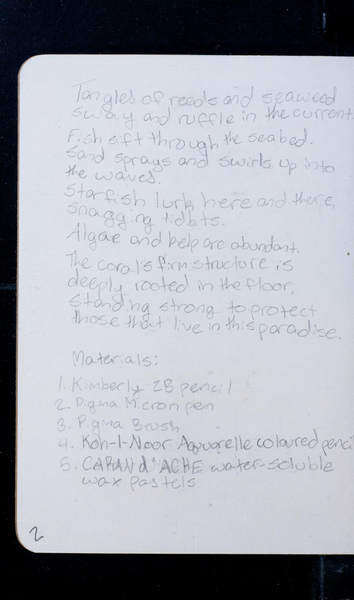 Tangles of reeds and seaweed
sway and ruffle in the current.
Fish sift through the seabed.
Sand sprays and swirls up into
the waves.
Starfish lurk here and there,
snagging tidbits.
Algae and kelp are abundant.
The coral's firm structure is
deeply rooted in the floor,
standing strong to protect
those that live in this paradise.
Materials:
1. Kimberly 2B pencil
2. Pigma Micron pen
3. Pigma Brush
4. Koh-I-Noor Aquarelle coloured pencil
5. CARAN d'ACHE water-soluble
wax pastels
2